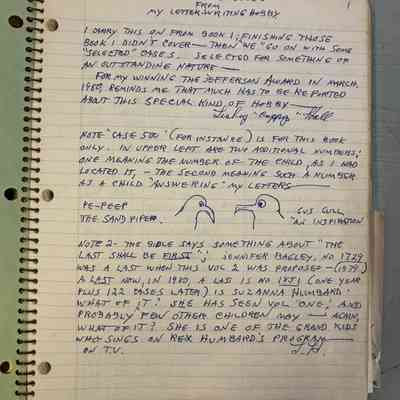 FROM
MY LETTER-WRITING HOBBY
1
I CARRY THIS ON FROM BOOK 1, FINISHING THOSE
BOOK 1 DIDN'T COVER — THEN WE "GO ON WITH SOME
"SELECTED" CASES. SELECTED FOR SOMETHING OF
AN OUTSTANDING NATURE
FOR MY WINNING THE JEFFERSON AWARD IN MARCH,
1980, REMINDS ME THAT MUCH HAS TO BE REPORTED
ABOUT THIS SPECIAL KIND OF HOBBY
NOTE "CASE 500" (FOR INSTANCE) IS FOR THIS BOOK
ONLY. IN UPPER LEFT ARE TWO ADDITIONAL NUMBERS;
ONE MEANING THE NUMBER OF THE CHILD, AS I HAD
LOCATED IT, — THE SECOND MEANING SUCH A NUMBER
AS A CHILD "ANSWERING" MY LETTERS
PE-PEEP GUS GULL
THE SAND PIPER. "AN INSPIRATION
NOTE 2- THE BIBLE SAYS SOMETHING ABOUT "THE
LAST SHALL BE FIRST"; JENNIFER BAGLEY, NO. 1729
WAS A LAST WHEN THIS VOL 2 WAS PROPOSED — (1979)
A LAST NOW, IN 1980, A LAS IS NO. 1851 (ONE YEAR
PLUS 122 CASES LATER) IS SUZANNA HUMBARD.
WHAT OF IT? SHE HAS SEEN VOL "ONE", AND
PROBABLY FEW OTHER CHILDREN MAY — AGAIN,
WHAT OF IT? SHE IS ONE OF THE GRAND KIDS
WHO SINGS ON REX HUMBARD'S PROGRAM
ON T.V.